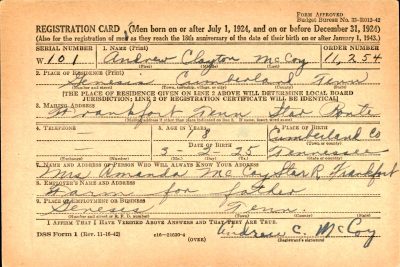 FORM APPROVED
Budget Bureau No. 33-R012-42
REGISTRATION CARD (Men born on or after July 1, 1924, and on or before December 31, 1924)
(Also for the registration of men as they reach the 18th anniversary of the date of their birth on or after January 1, 1943.)
SERIAL NUMBER 1. NAME (Print) ORDER NUMBER
W 101 Andrew Clayton McCoy 11,254
(First) (Middle) (Last)
2. PLACE OF RESIDENCE (Print)
Genesis Cumberland Tenn
(Number and street) (Town, township, village, or city) (County) (State)
[THE PLACE OF RESIDENCE GIVEN ON LINE 2 ABOVE WILL DETERMINE LOCAL BOARD
JURISDICTION; LINE 2 OF REGISTRATION CERTIFICATE WILL BE IDENTICAL]
3. MAILING ADDRESS
Frankfort Tenn Star Route
4. TELEPHONE 5. AGE IN YEARS 6. PLACE OF BIRTH
18 Cumberland Co
DATE OF BIRTH (Town or county)
— 3-2-25 Tennessee
(Mo.) (Day) (Yr.) (State or country)
7. NAME AND ADDRESS OF PERSON WHO WILL ALWAYS KNOW YOUR ADDRESS
Mrs Amanda McCoy Star R. Frankfort
8. EMPLOYER'S NAME AND ADDRESS
Farm for father
9. PLACE OF EMPLOYMENT OR BUSINESS
Genesis Tenn.
(Number and street or R. F. D. number) (Town) (County) (State)
I AFFIRM THAT I HAVE VERIFIED ABOVE ANSWERS AND THAT THEY ARE TRUE.
DSS Form 1 (Rev. 11-16-42) (OVER) Andrew C. McCoy
(Registrant's signature)